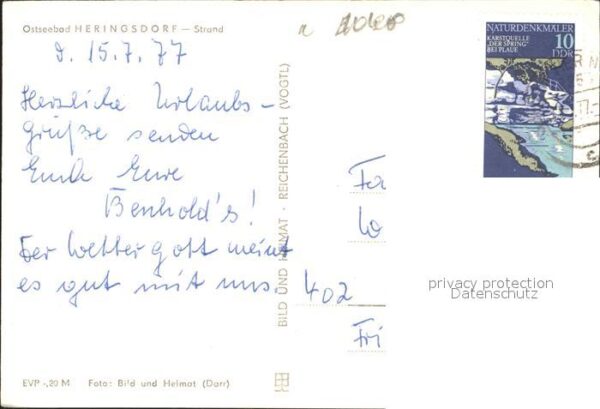 Ostseebad HERINGSDORF — Strand
d. 15.7.77
Herzliche Urlaubs-
grüße senden
Euch Eure
Benhold's!
Der Wettergott meint
es gut mit uns.
EVP -,20 M Foto: Bild und Heimat (Darr)
BILD UND HEIMAT · REICHENBACH (VOGTL)
NATURDENKMALER
KARSTQUELLE
„DER SPRING"
BEI PLAUE
10
DDR
Fa
402
Fri
privacy protection
Datenschutz